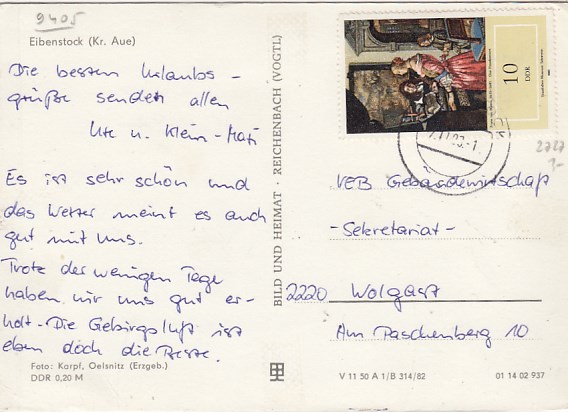 9405
Eibenstock (Kr. Aue)
Die besten Urlaubs-
grüße sendet allen
Ute u. Klein-Mati
Es ist sehr schön und
das Wetter meint es auch
gut mit uns.
Trotz der wenigen Tage
haben wir uns gut er-
holt. Die Gebirgsluft ist
eben doch die Beste.
Foto: Karpf, Oelsnitz (Erzgeb.)
DDR 0,20 M
BILD UND HEIMAT · REICHENBACH (VOGTL)
10
DDR
2727
1-
VEB Gebäudewirtschaft
-Sekretariat-
2220 Wolgast
Am Paschenberg 10
V 11 50 A 1/B 314/82
01 14 02 937